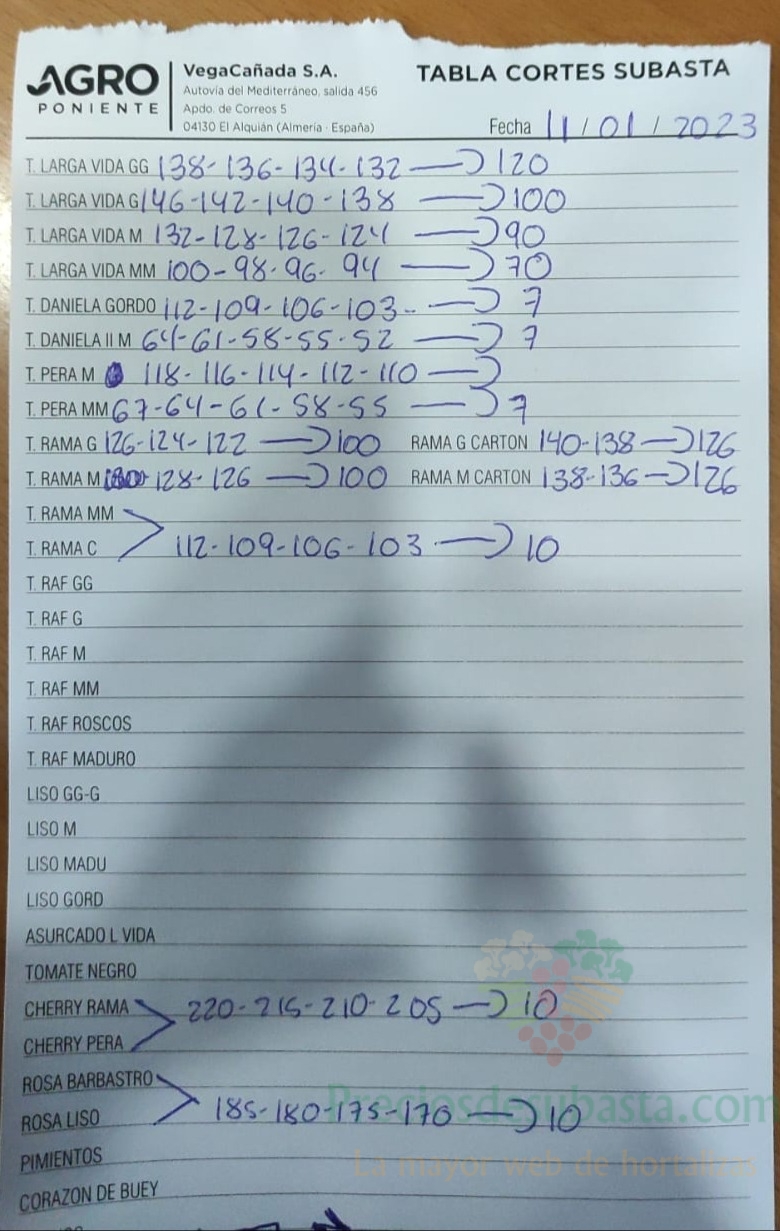 AGRO PONIENTE
VegaCañada S.A.
Autovía del Mediterráneo, salida 456
Apdo. de Correos 5
04130 El Alquián (Almería - España)
TABLA CORTES SUBASTA
Fecha 11/01/2023
T. LARGA VIDA GG 138-136-134-132 → 120
T. LARGA VIDA G 146-142-140-138 → 100
T. LARGA VIDA M 132-128-126-124 → 90
T. LARGA VIDA MM 100-98-96-94 → 70
T. DANIELA GORDO 112-109-106-103 → 7
T. DANIELA II M 64-61-58-55-52 → 7
T. PERA M 118-116-114-112-110 →
T. PERA MM 67-64-61-58-55 → 7
T. RAMA G 126-124-122 → 100 RAMA G CARTON 140-138 → 126
T. RAMA M 128-126 → 100 RAMA M CARTON 138-136 → 126
T. RAMA MM
T. RAMA C 112-109-106-103 → 10
T. RAF GG
T. RAF G
T. RAF M
T. RAF MM
T. RAF ROSCOS
T. RAF MADURO
LISO GG-G
LISO M
LISO MADU
LISO GORD
ASURCADO L VIDA
TOMATE NEGRO
CHERRY RAMA 220-215-210-205 → 10
CHERRY PERA
ROSA BARBASTRO
ROSA LISO 185-180-175-170 → 10
Preciosdesubasta.com
PIMIENTOS
La mayor web de hortalizas
CORAZON DE BUEY